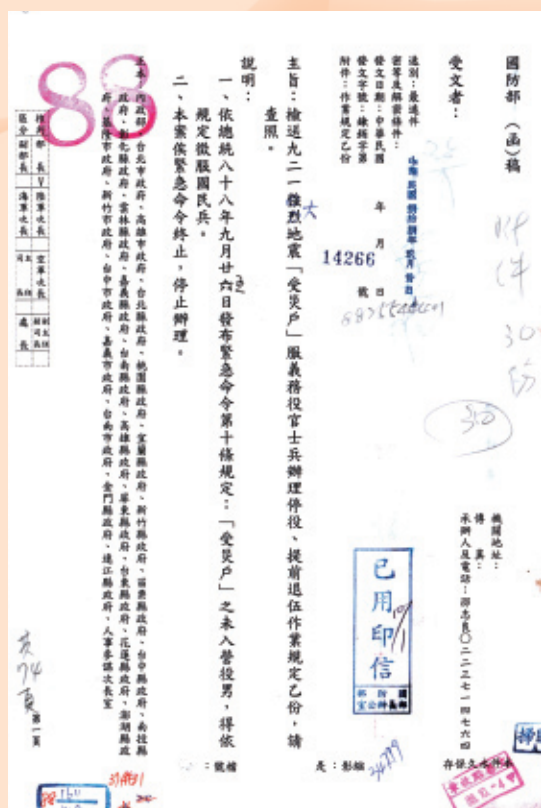 國防部（函）稿
附件30份
30
機關地址：
傳真：
承辦人及電話：邵志良〇二二三七一四七六四
受文者：
速別：最速件
密等及解密條件：
發文日期：中華民國　年　月　日
發文字號：鍊銘字第14266號
附件：作業規定乙份
主旨：檢送九二一大地震「受災戶」服義務役官士兵辦理停役、提前退伍作業規定乙份，請
查照。
說明：
一、依總統八十八年九月廿五日發布緊急命令第十條規定：「受災戶」之未入營役男，得依
規定徵服國民兵。
二、本案俟緊急命令終止，停止辦理。
正本：內政部、台北市政府、高雄市政府、台北縣政府、桃園縣政府、宜蘭縣政府、新竹縣政府、苗栗縣政府、台中縣政府、南投縣
政府、彰化縣政府、雲林縣政府、嘉義縣政府、台南縣政府、高雄縣政府、屏東縣政府、台東縣政府、花蓮縣政府、澎湖縣政
府、基隆市政府、新竹市政府、台中市政府、嘉義市政府、台南市政府、金門縣政府、連江縣政府、人事參謀次長室
88
已用印信
10/1
國防部
部長辦公室
檔號：
縮影：是
保存年限：永久
共74頁
第一頁